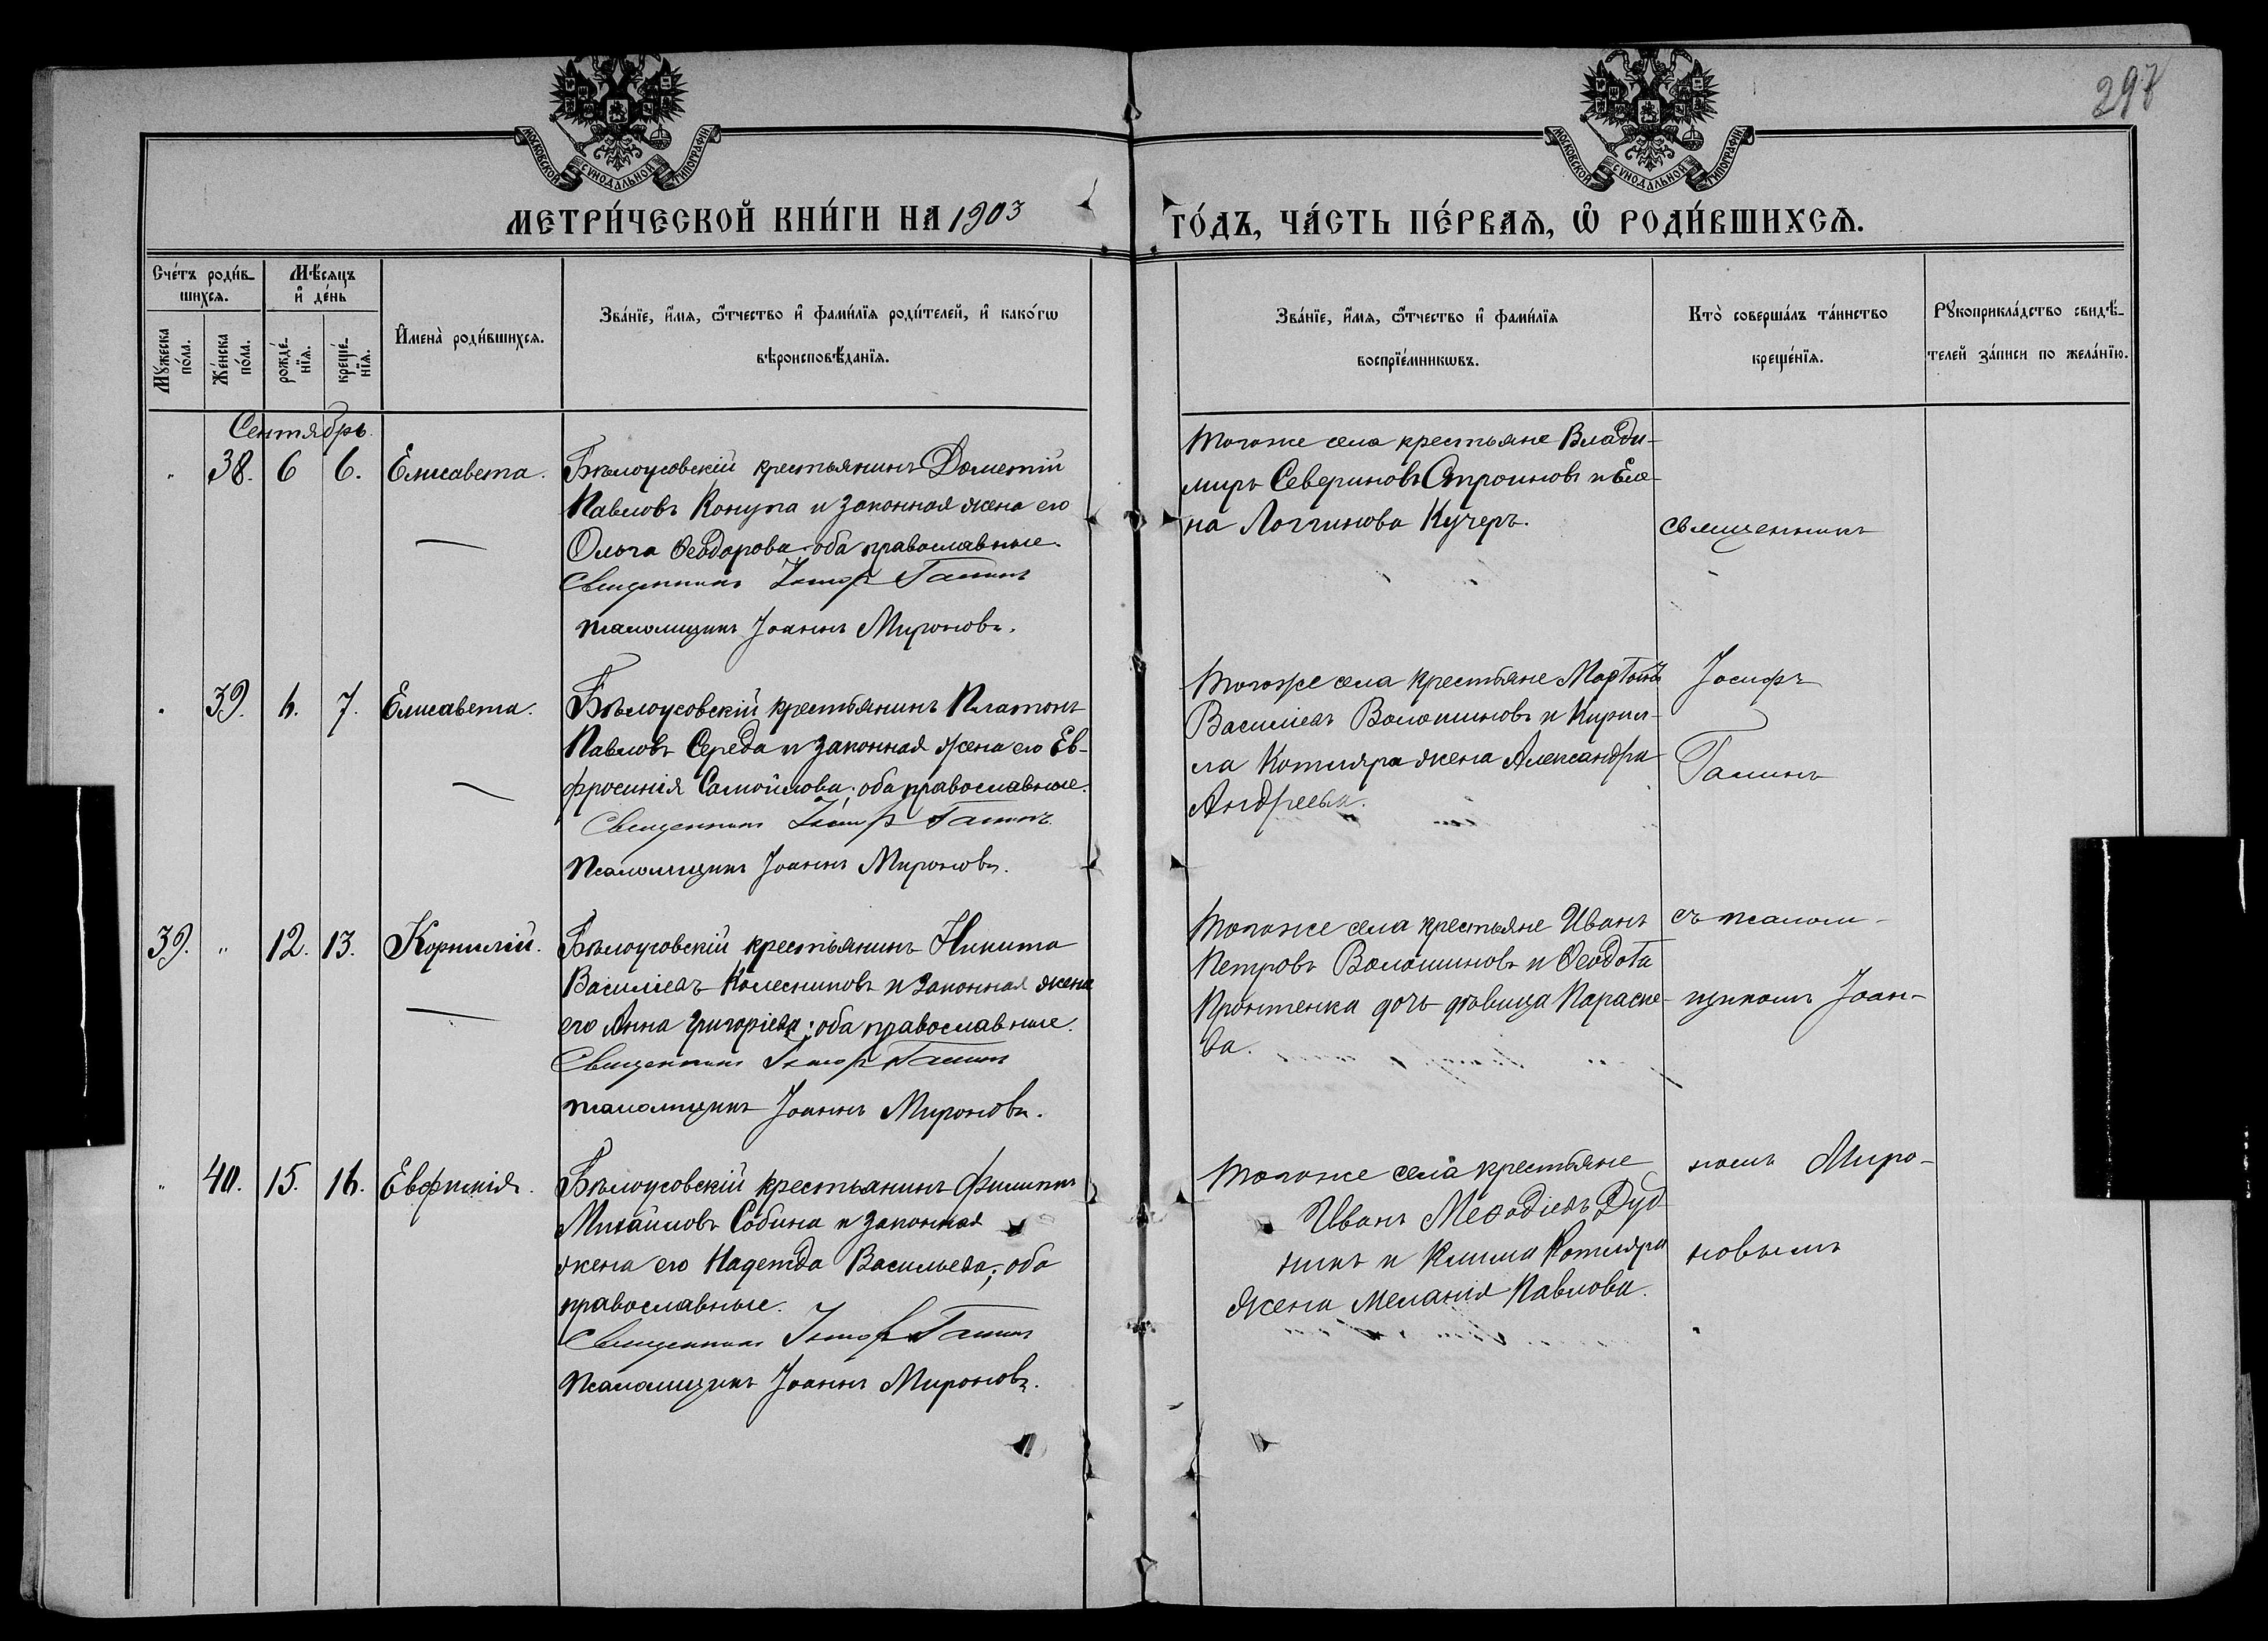 297
МОСКОВСКОЙ СѴНОДАЛЬНОЙ ТИПОГРАФІИ
МОСКОВСКОЙ СѴНОДАЛЬНОЙ ТИПОГРАФІИ
МЕТРИ́ЧЕСКОЙ КНИ́ГИ НА 1903 ГО́ДЪ, ЧА́СТЬ ПЕ́РВАѦ, Ѡ РОДИ́ВШИХСѦ.
Счéтъ роди́в-
шихсѧ.
Мѣ́сѧцъ
и҆ дéнь
Мꙋ́жеска пóла.
Жéнска пóла.
рождé-нїѧ.
крещé-нїѧ.
И҆менà роди́вшихсѧ.
Звáнїе, и҆́мѧ, ѻ҆́тчество и҆ фами́лїѧ роди́телей, и҆ какóгѡ
вѣроисповѣ́данїѧ.
Звáнїе, и҆́мѧ, ѻ҆́тчество и҆ фами́лїѧ
воспрїéмникѡвъ.
Ктò совершáлъ тáинство
крещéнїѧ.
Рꙋкоприклáдство свидѣ́-
телей зáписи по желáнїю.
Сентябрь.
" 38. 6 6. Елисавета. Бѣлоусовскій крестьянинъ Дометій
Павловъ Конупа и законная жена его
Ольга Ѳеодорова; оба православные.
Священникъ Іосиф Галинъ
псаломщикъ Іоаннъ Мироновъ.
Тогоже села крестьяне Влади-
миръ Севериновъ Строиновъ и Еле-
на Логгинова Кучеръ.
священникъ
" 39. 6. 7. Елисавета. Бѣлоусовскій крестьянинъ Платонъ
Павловъ Середа и законная жена его Ев-
фросинія Самойлова; оба православные.
Священникъ Іосиф Галинъ
Псаломщикъ Іоаннъ Мироновъ.
Тогоже села крестьяне
Василіевъ Волошиновъ и Кирил-
ла Котляра жена Александра
Андреева.
Іосифъ
Галинъ
39. " 12. 13. Корнилій. Бѣлоусовскій крестьянинъ Никита
Василіевъ Колесниковъ и законная жена
его Анна Григоріева; оба православные.
Священникъ Іосиф Галинъ
псаломщикъ Іоаннъ Мироновъ.
Тогоже села крестьяне Иванъ
Петровъ Волошиновъ и Ѳеодота
дочь дѣвица Параске-
ва.
съ псалом-
щикомъ Іоан-
" 40. 15. 16. Евфимія. Бѣлоусовскій крестьянинъ Филиппъ
Михайловъ Собина и законная
жена его Надежда Васильева; оба
православные.
Священникъ Іосиф Галинъ
Псаломщикъ Іоаннъ Мироновъ.
Тогоже села крестьяне
Иванъ Меѳодіевъ Дуд-
никъ и Клима Котляра
жена Меланія Павлова.
номъ Миро-
новымъ